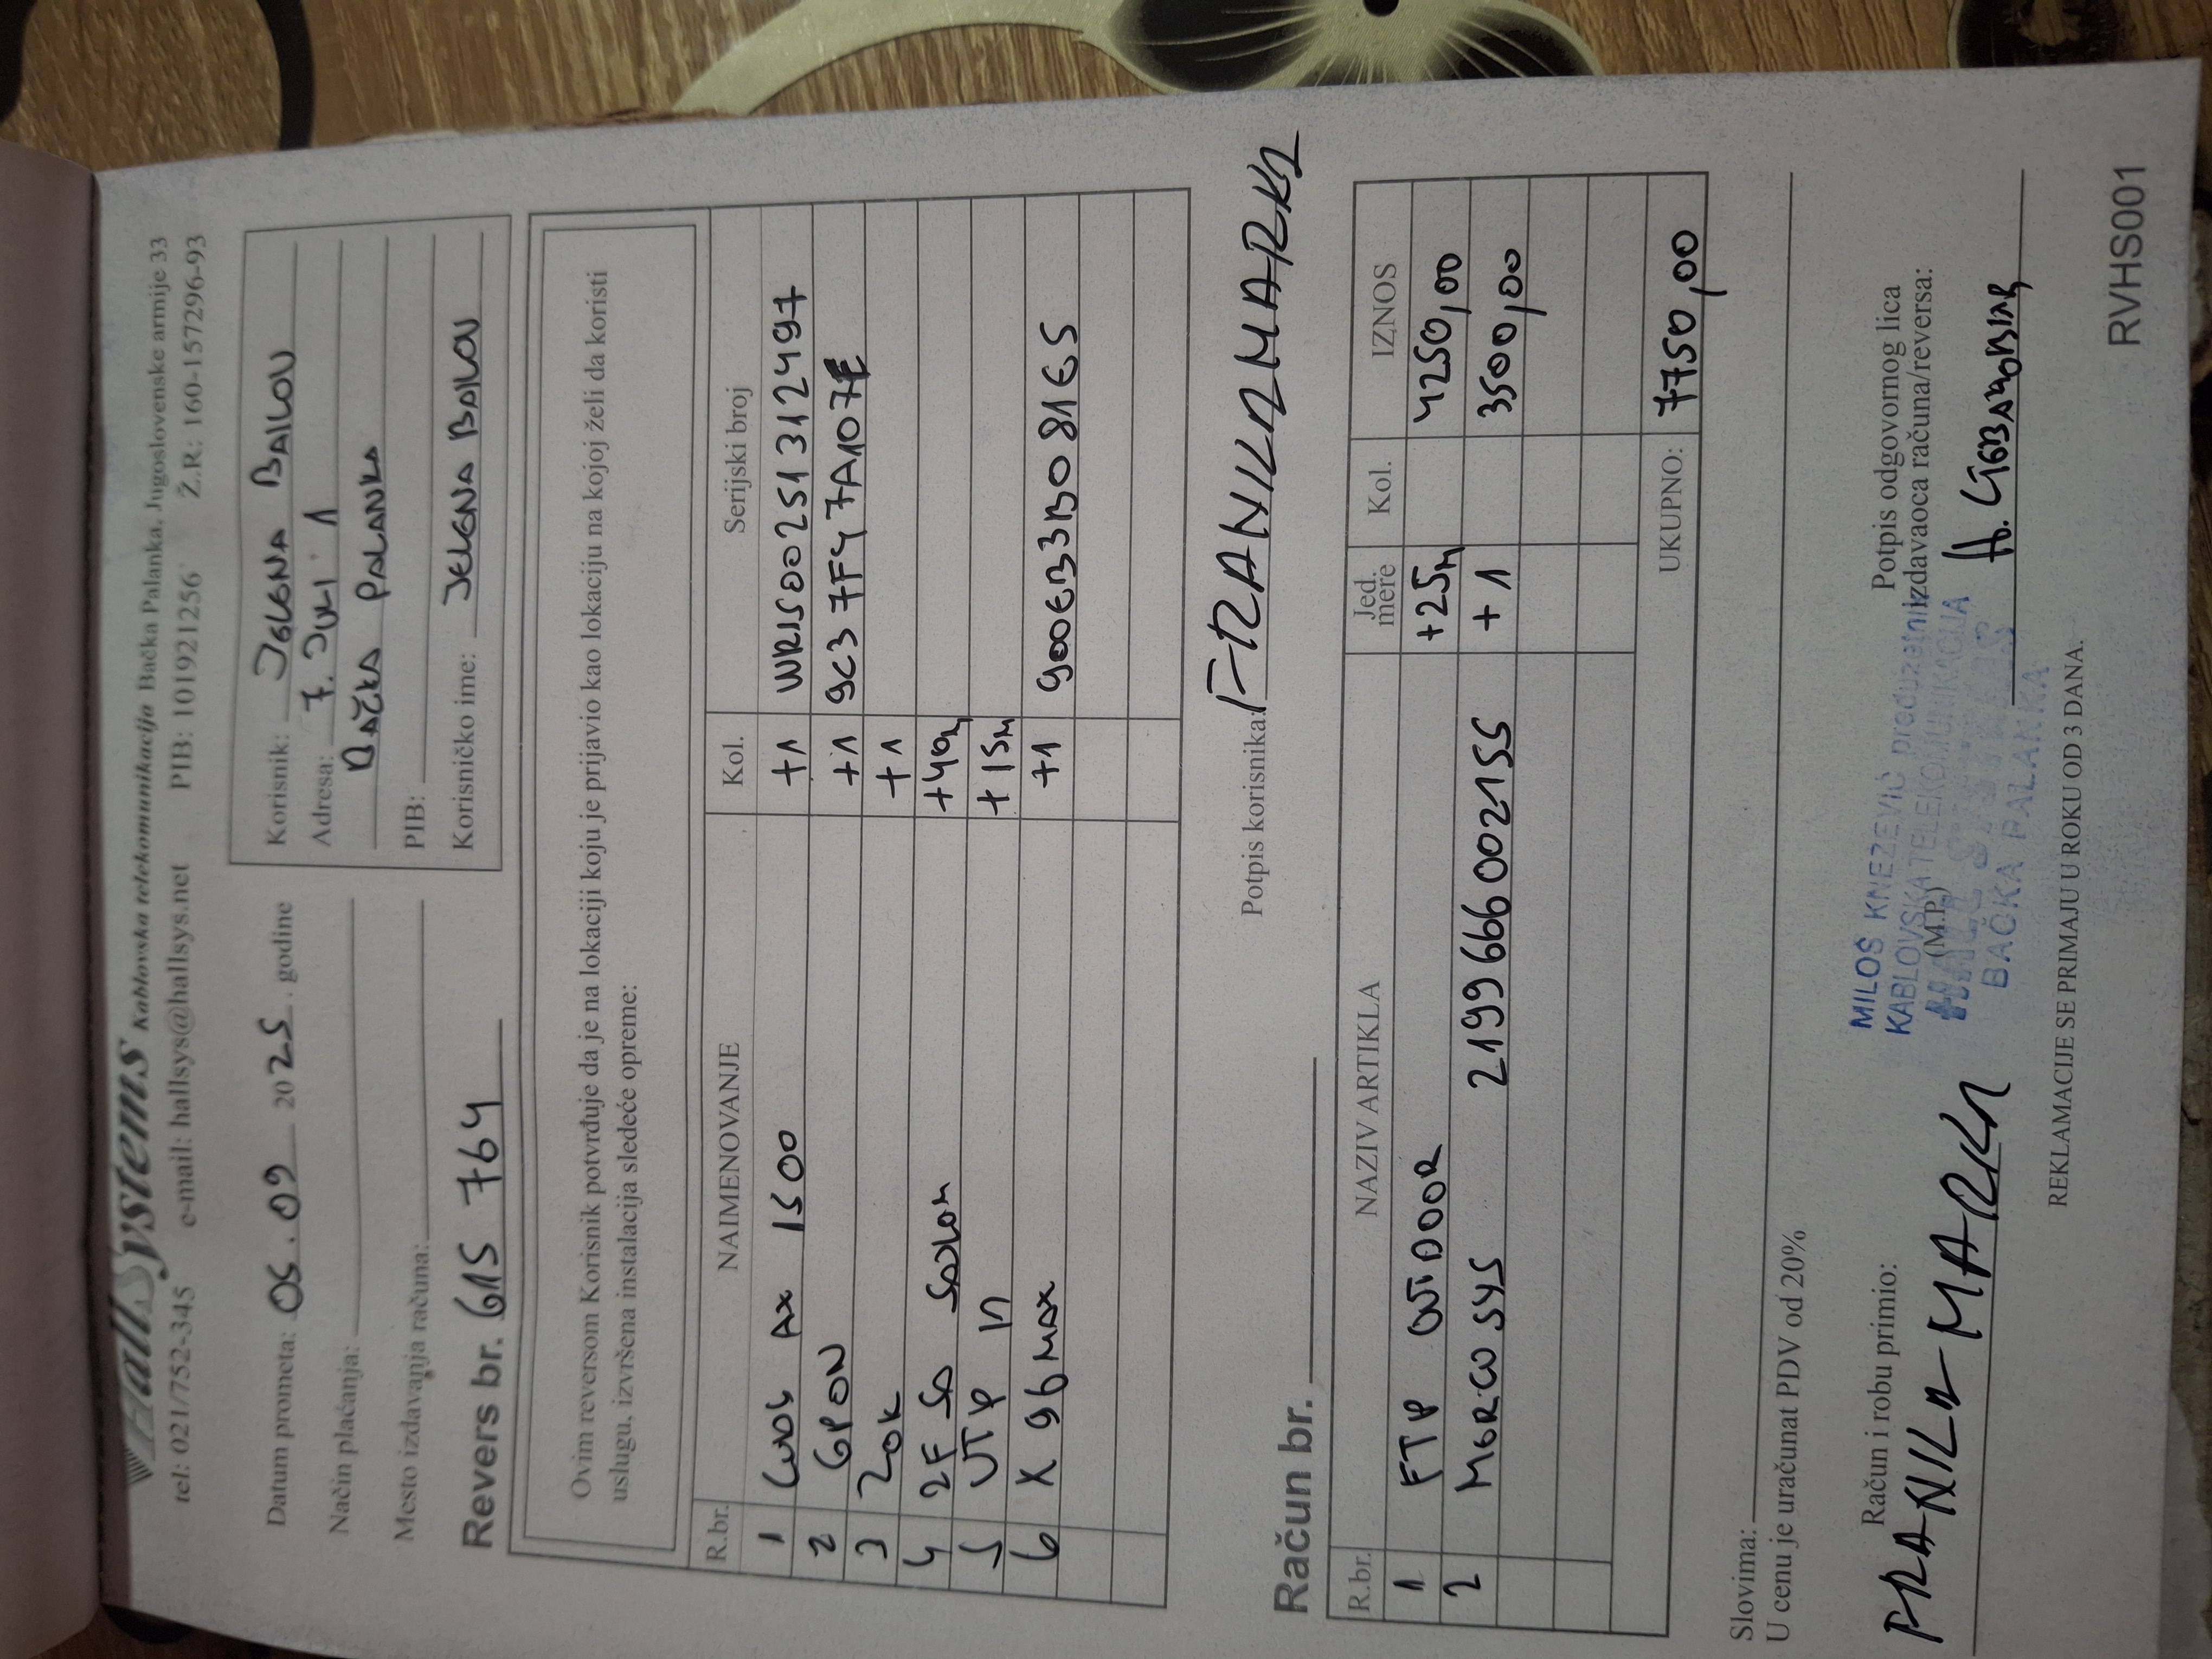 HallSystems Kablovska telekomunikacija Bačka Palanka, Jugoslovenske armije 33
tel: 021/752-345 e-mail: hallsys@hallsys.net PIB: 101921256 Ž.R: 160-157296-93
Datum prometa: 05.09 2025. godine
Način plaćanja:
Mesto izdavanja računa:
Revers br. 615 764
Korisnik: JELENA BAILOV
Adresa: 7. JULI 1
BAČKA PALANKA
PIB:
Korisničko ime: JELENA BAILOV
Ovim reversom Korisnik potvrđuje da je na lokaciji koju je prijavio kao lokaciju na kojoj želi da koristi
uslugu, izvršena instalacija sledeće opreme:
R.br. NAIMENOVANJE Kol. Serijski broj
1 AX 1500 +1 WR1500251312497
2 GPON +1 9C37F47A107E
3 ZOK +1
4 2F +40m
5 UTP IN +15m
6 X96MAX +1 900EB33B081E5
Potpis korisnika:
Račun br.
R.br. NAZIV ARTIKLA Jed. mere Kol. IZNOS
1 FTP OUTDOOR +25m 4250,00
2 MERCUSYS 2199666002155 +1 3500,00
UKUPNO: 7750,00
Slovima:
U cenu je uračunat PDV od 20%
Račun i robu primio:
(M.P.)
MILOŠ KNEZEVIĆ preduzetnik
KABLOVSKA TELEKOMUNIKACIJA
HALL SYSTEMS
BAČKA PALANKA
Potpis odgovornog lica
izdavaoca računa/reversa:
REKLAMACIJE SE PRIMAJU U ROKU OD 3 DANA.
RVHS001